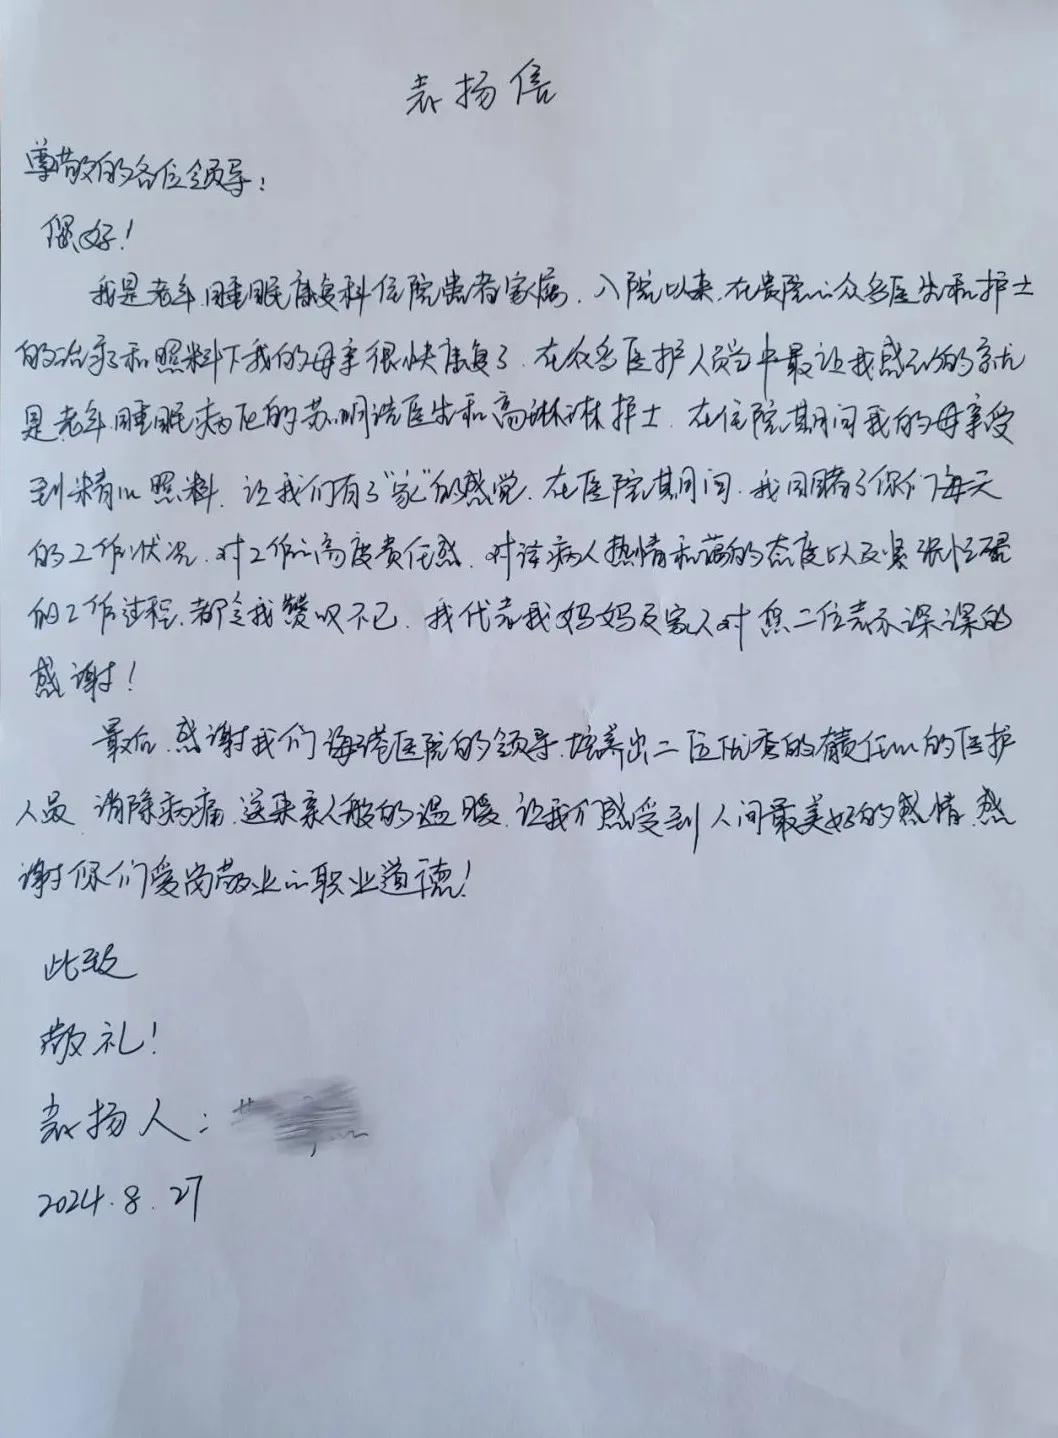 表扬信
尊敬的各位领导：
您好！
我是老年睡眠康复科住院患者家属，入院以来，在贵院心众多医生和护士
的治疗和照料下我的母亲很快康复了，在众多医护人员当中最让我感动的就
是老年睡眠病区的苏明浩医生和高琳琳护士，在住院期间我的母亲受
到精心照料，让我们有了“家”的感觉，在医院期间，我目睹了你们每天
的工作状况，对工作心高度责任感，对待病人热情和蔼的态度以及紧张忙碌
的工作过程，都令我赞叹不已，我代表我妈妈及家人对您二位表示深深的
感谢！
最后，感谢我们海港医院的领导，培养出二位优秀的有责任心的医护
人员，消除病痛，送来亲人般的温暖，让我们感受到人间最美好的感情，感
谢你们爱岗敬业心职业道德！
此致
敬礼！
表扬人：
2024.8.27